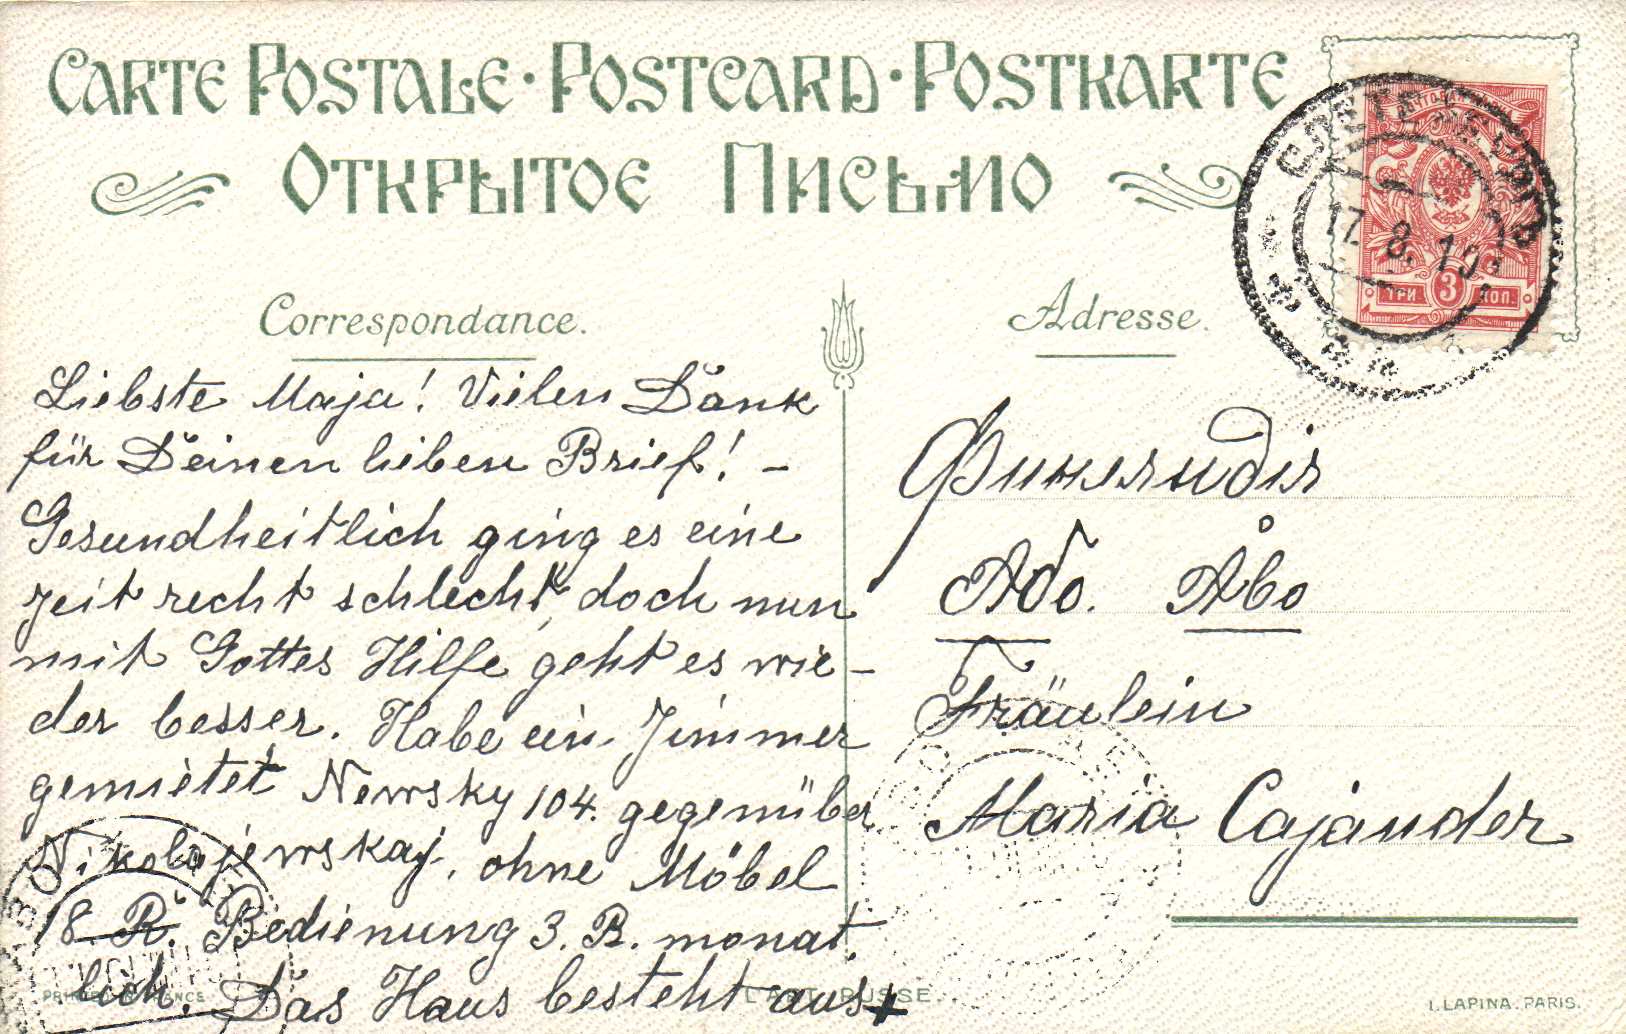 CARTE POSTALE · POSTCARD · POSTKARTE
ОТКРЫТОЕ ПИСЬМО
Correspondance.
Liebste Maja! Vielen Dank
für Deinen lieben Brief! –
Gesundheitlich ging es eine
Zeit recht schlecht, doch nun
mit Gottes Hilfe geht es wie–
der besser. Habe ein Zimmer
gemietet Newsky 104. gegenüber
Nikolajewskaj, ohne Möbel
18. R. Bedienung 3. R. monat.
lich. Das Haus besteht aus
PRINTED IN FRANCE
L'ART RUSSE.
Adresse.
ТРИ 3 КОП.
17. 8. 1911
Финляндія
Або. Åbo
Fräulein
Maria Cajander
ABO
I. LAPINA. PARIS.